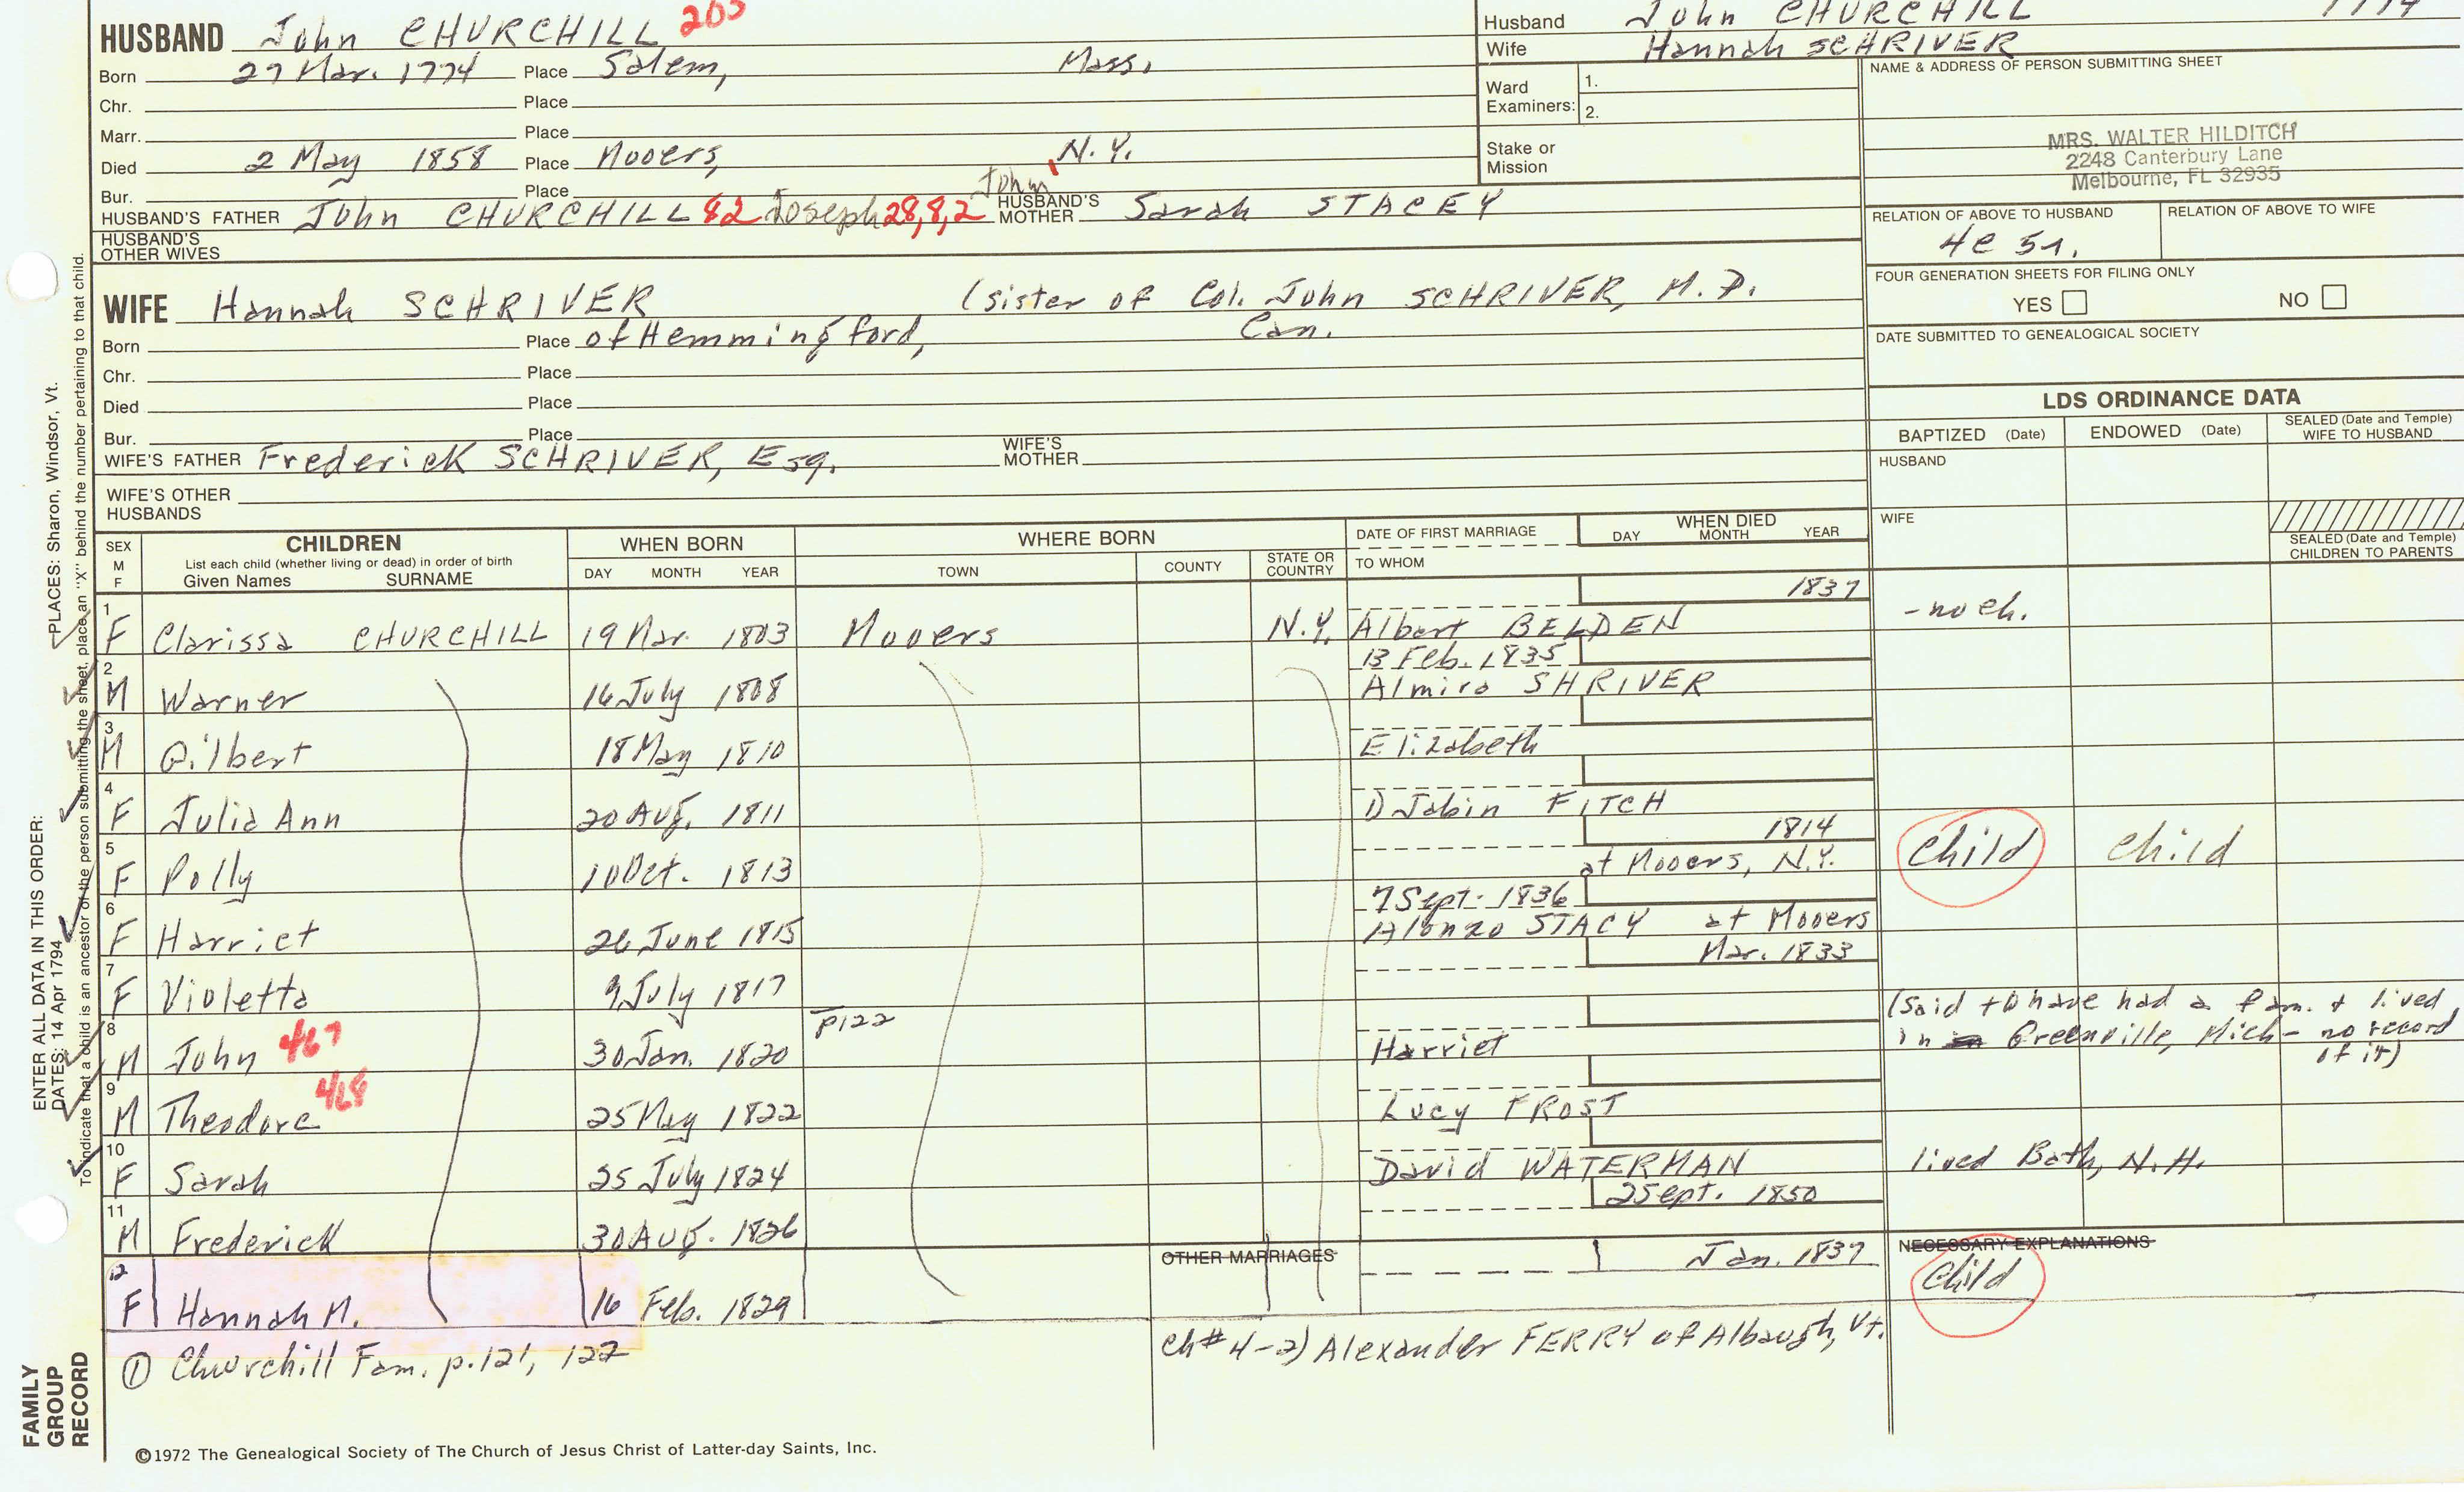 HUSBAND John CHURCHILL 205
Born 27 Mar. 1774 Place Salem, Mass.
Chr. Place
Marr. Place
Died 2 May 1858 Place Mooers, N.Y.
Bur. Place
HUSBAND'S FATHER John CHURCHILL 82 Joseph 28,8,2 John HUSBAND'S MOTHER Sarah STACEY
HUSBAND'S OTHER WIVES
Husband John CHURCHILL 1774
Wife Hannah SCHRIVER
Ward Examiners: 1.
2.
Stake or Mission
NAME & ADDRESS OF PERSON SUBMITTING SHEET
MRS. WALTER HILDITCH
2248 Canterbury Lane
Melbourne, FL 32935
RELATION OF ABOVE TO HUSBAND RELATION OF ABOVE TO WIFE
4c 5r.
FOUR GENERATION SHEETS FOR FILING ONLY
YES NO
DATE SUBMITTED TO GENEALOGICAL SOCIETY
WIFE Hannah SCHRIVER (sister of Col. John SCHRIVER, M.P.
Born Place of Hemmingford, Can.
Chr. Place
Died Place
Bur. Place
WIFE'S FATHER Frederick SCHRIVER, Esq. WIFE'S MOTHER
WIFE'S OTHER HUSBANDS
LDS ORDINANCE DATA
BAPTIZED (Date) ENDOWED (Date) SEALED (Date and Temple) WIFE TO HUSBAND
HUSBAND
WIFE
SEALED (Date and Temple) CHILDREN TO PARENTS
SEX M F
CHILDREN
List each child (whether living or dead) in order of birth
Given Names SURNAME
WHEN BORN
DAY MONTH YEAR
WHERE BORN
TOWN COUNTY STATE OR COUNTRY
DATE OF FIRST MARRIAGE
TO WHOM
WHEN DIED
DAY MONTH YEAR
1837
1 F Clarissa CHURCHILL 19 Mar. 1803 Mooers N.Y. Albert BELDEN - no ch.
13 Feb. 1835
2 M Warner 16 July 1808 Almira SHRIVER
3 M Gilbert 18 May 1810 Elizabeth
4 F Julia Ann 20 Aug. 1811 1) Jabin FITCH
1814
5 F Polly 10 Oct. 1813 at Mooers, N.Y. Child Child
7 Sept. 1836
6 F Harriet 26 June 1815 Alonzo STACY at Mooers
Mar. 1833
7 F Violetta 9 July 1817
8 M John 467 30 Jan. 1820 p122 Harriet (said to have had a fam. & lived
in Greenville, Mich - no record
of it)
9 M Theodore 468 25 May 1822 Lucy FROST
10 F Sarah 25 July 1824 David WATERMAN lived Bath, N.H.
2 Sept. 1850
11 M Frederick 30 Aug. 1826
OTHER MARRIAGES Jan. 1837 NECESSARY EXPLANATIONS
12 F Hannah M. 16 Feb. 1829 Child
① Churchill Fam. p.121, 122
ch# 4-2) Alexander FERRY of Alburgh, Vt.
©1972 The Genealogical Society of The Church of Jesus Christ of Latter-day Saints, Inc.
FAMILY GROUP RECORD
ENTER ALL DATA IN THIS ORDER:
DATES: 14 Apr 1794 PLACES: Sharon, Windsor, Vt.
To indicate that a child is an ancestor of the person submitting the sheet, place an "X" behind the number pertaining to that child.